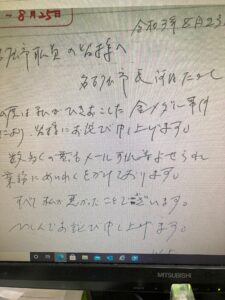 ～8月25日
令和3年8月23
職員の皆様へ
名古屋市長 河村たかし
この度は私がひきおこした金メダル事件
により、皆様にお詫び申し上げます。
数多くの電話、メール、
業務にめいわくをかけております。
すべて私が悪かったことでございます。
お詫び申し上げます。
MITSUBISHI